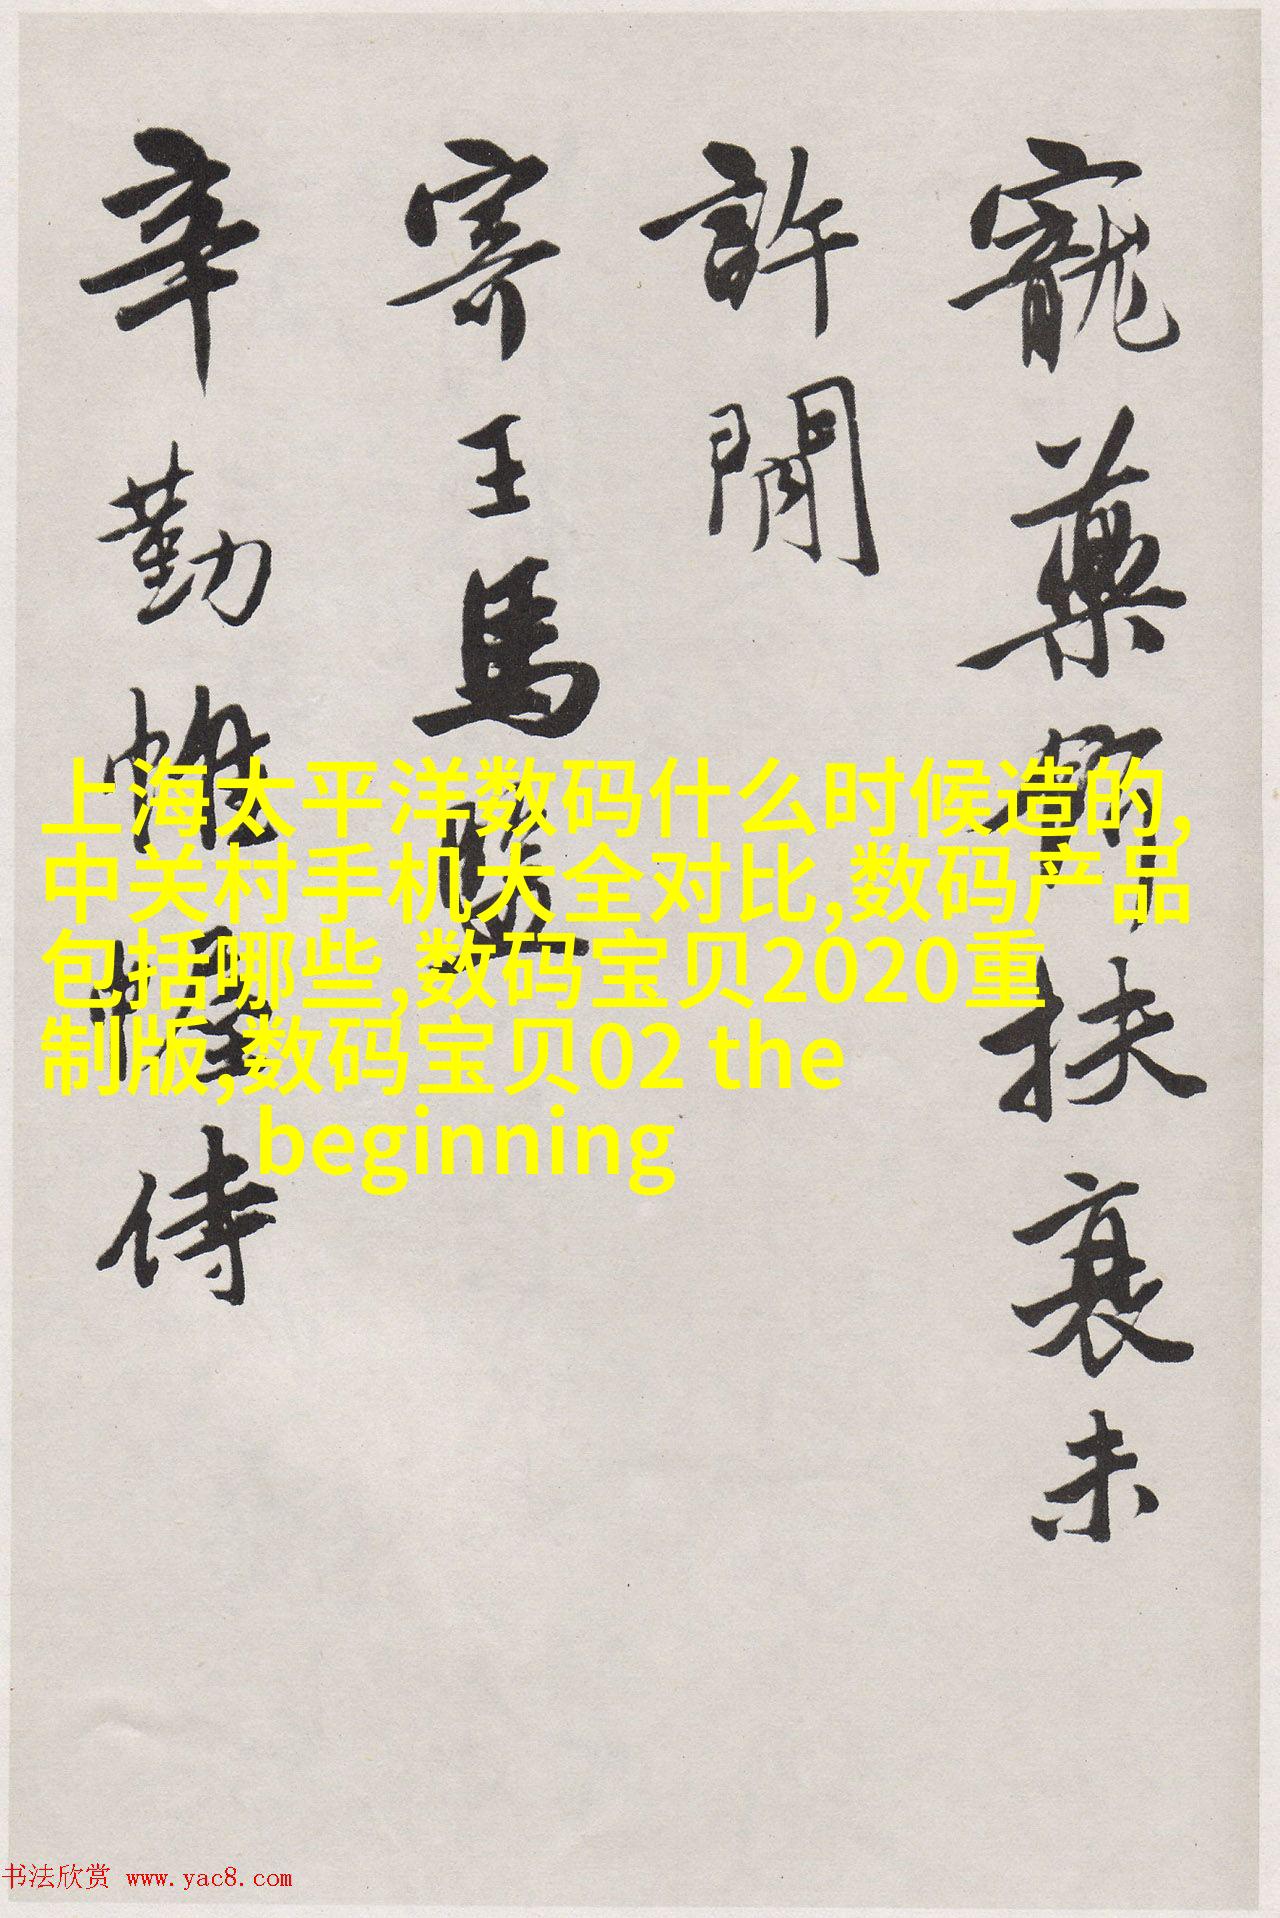 寵藥扶衰未
許閒
寄王馬
辛勤帷幄侍
上海太平洋数码什么时候造的,
中关村手机大全对比,数码产品
包括哪些,数码宝贝2020重
制版,数码宝贝02 the
beginning
书法欣赏 www.yac8.com